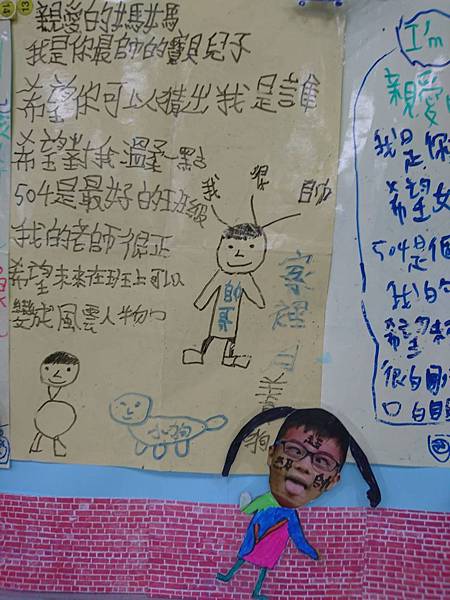 親愛的媽媽
我是你最帥的寶貝兒子
希望你可以猜出我是誰
希望對我溫柔一點
504是最好的班級
我的老師很正
希望未來在班上可以
變成風雲人物
我 很 帥
帥哥
小狗
家裡
狗
I'm
親愛
我是你
希望
504是個
我的
希望
很